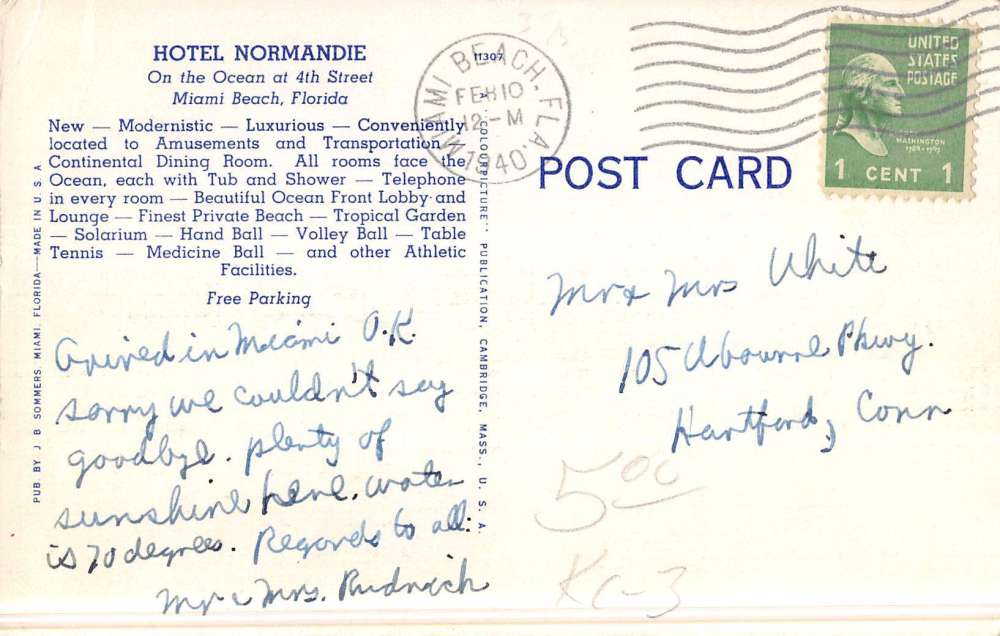 HOTEL NORMANDIE
On the Ocean at 4th Street
Miami Beach, Florida
New — Modernistic — Luxurious — Conveniently
located to Amusements and Transportation
Continental Dining Room. All rooms face the
Ocean, each with Tub and Shower — Telephone
in every room — Beautiful Ocean Front Lobby and
Lounge — Finest Private Beach — Tropical Garden
— Solarium — Hand Ball — Volley Ball — Table
Tennis — Medicine Ball — and other Athletic
Facilities.
Free Parking
Arived in Miami O.K.
sorry we couldn't say
goodbye. plenty of
sunshine here. water
is 70 degrees. Regards to all:
Mr & Mrs. Rudnich
PUB. BY J B SOMMERS. MIAMI. FLORIDA—MADE IN U. S. A
"COLOURPICTURE" PUBLICATION, CAMBRIDGE, MASS., U. S. A.
11307
MIAMI BEACH, FLA.
FEB 10
12-M
1940
POST CARD
UNITED
STATES
POSTAGE
WASHINGTON
1789-1797
1 CENT 1
Mr & Mrs White
105 Pkwy.
Hartford, Conn
5 00
KC-3